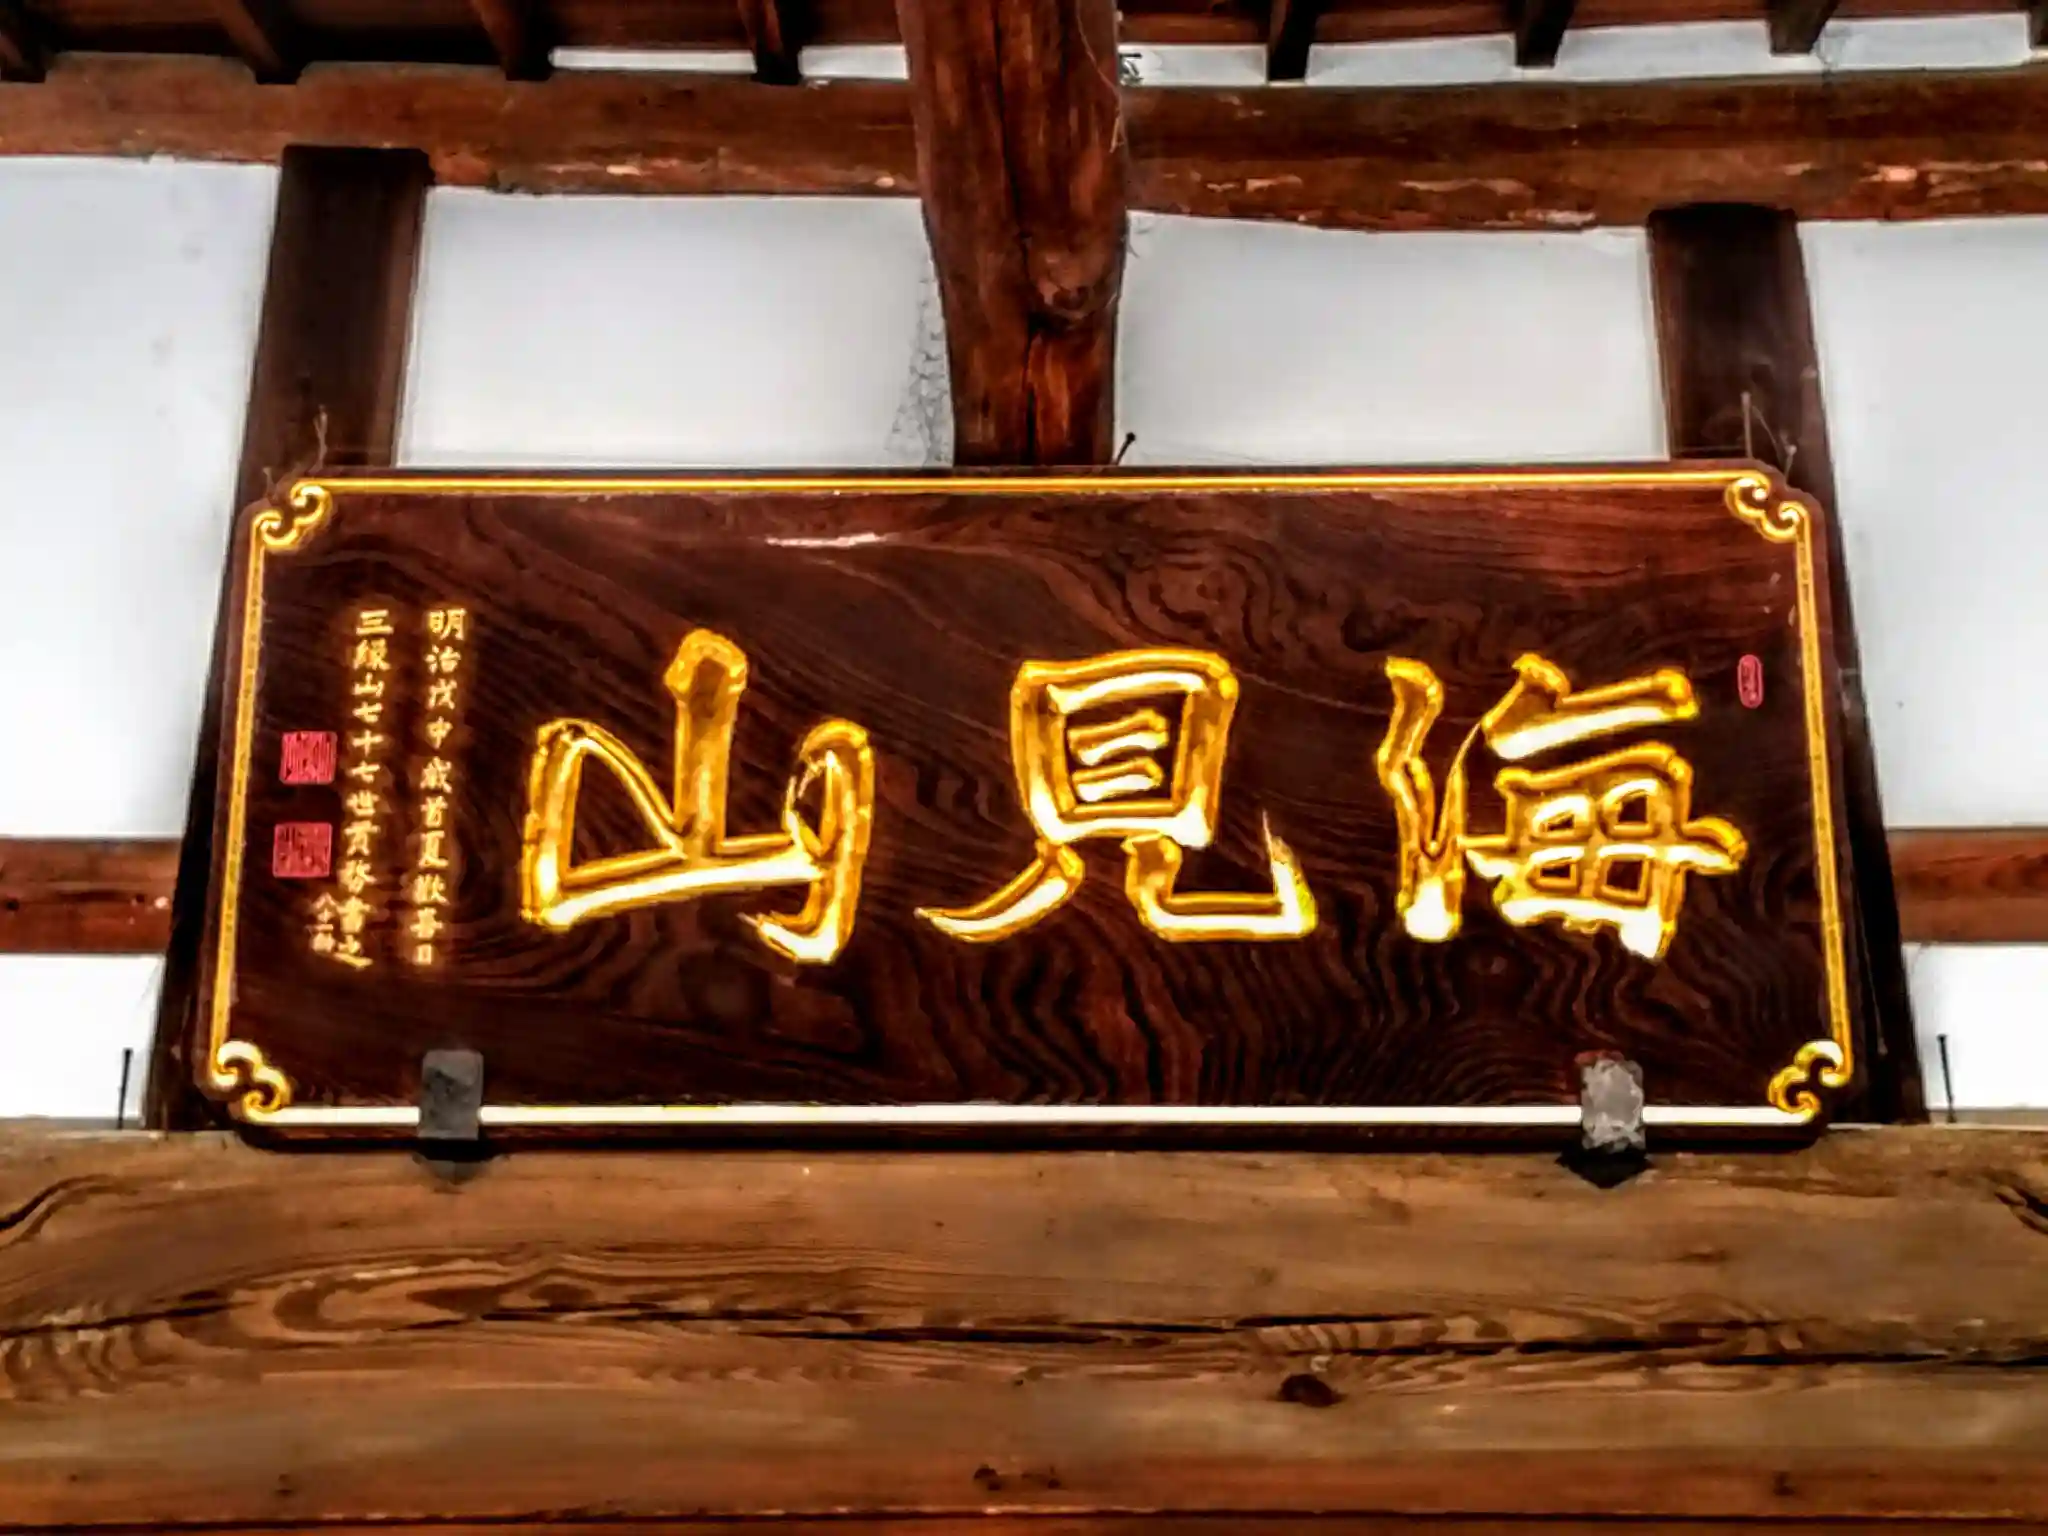 海見山
明治戊申歳首夏歡喜日
三縁山七十七世貫務書之
八十一